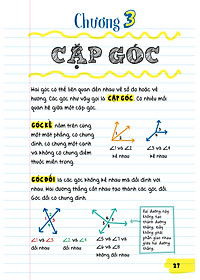 Chương 3
CẶP GÓC
Hai góc có thể liên quan đến nhau về số đo hoặc về
hướng. Các góc như vậy gọi là CẶP GÓC. Có nhiều mối
quan hệ giữa một cặp góc.
GÓC KỀ nằm trên cùng
một mặt phẳng, có chung
đỉnh, có chung một cạnh
và không có chung điểm
thuộc miền trong.
∠1 và ∠2
kề nhau
∠5 và ∠6
kề nhau
GÓC ĐỐI là các góc không kề nhau mà đối đỉnh với
nhau. Hai đường thẳng cắt nhau tạo thành các góc đối.
Góc đối có chung đỉnh.
∠1 và ∠3
đối nhau
∠5 và ∠8
∠6 và ∠7
đối nhau
Hai đường này
không tạo
thành đường
thẳng. Đây
không phải
phần giao nhau
giữa hai đường
thẳng.
27